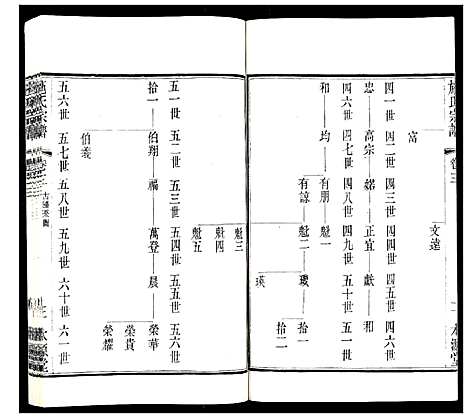 施氏宗譜 卷三
富
文達
四一世 四二世 四三世 四四世 四五世 四六世
忠 高宗 諾 正宜 猷 和
四六世 四七世 四八世 四九世 五十世 五一世
和 均 有朋 魁一
有諒 魁二 璣 拾一
瑛 拾二
魁三
魁四
魁五
五一世 五二世 五三世 五四世 五五世 五六世
拾一 伯翔 福 萬登 晨 榮華
榮貴
榮耀
伯義
五六世 五七世 五八世 五九世 六十世 六一世
施氏宗譜